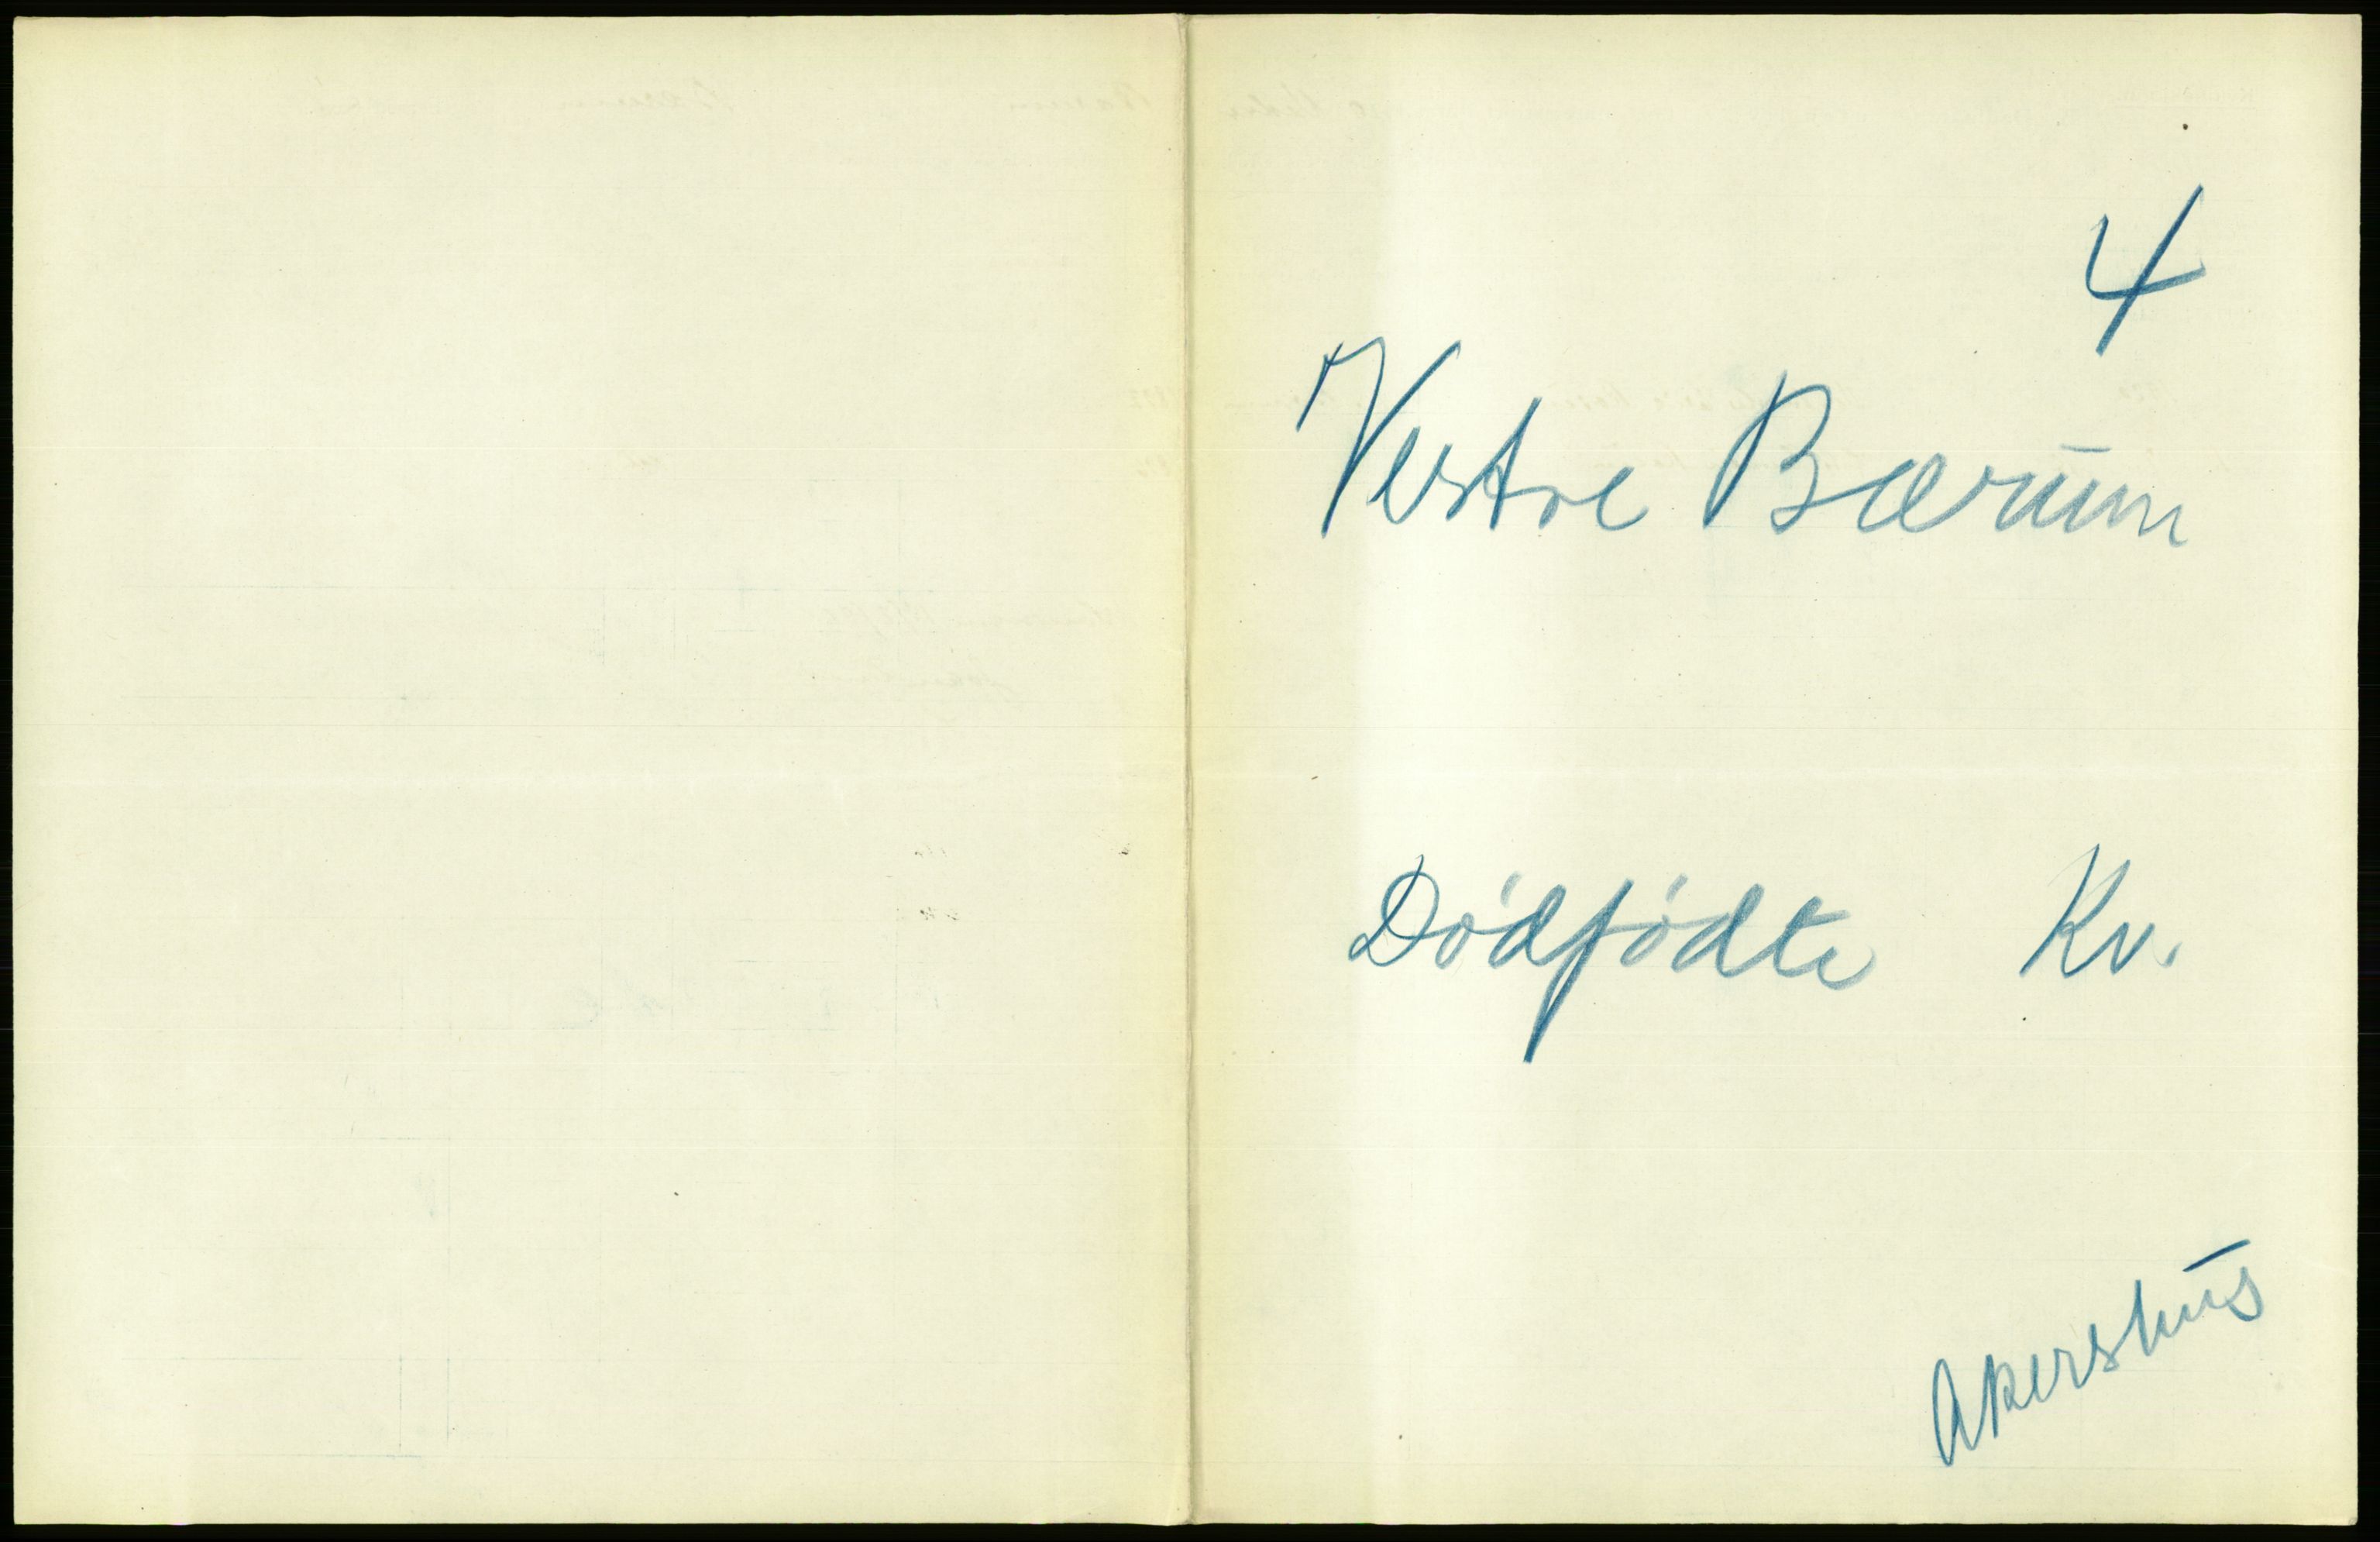 4
Vestre Bærum
Dødfødte Kv.
Akershus